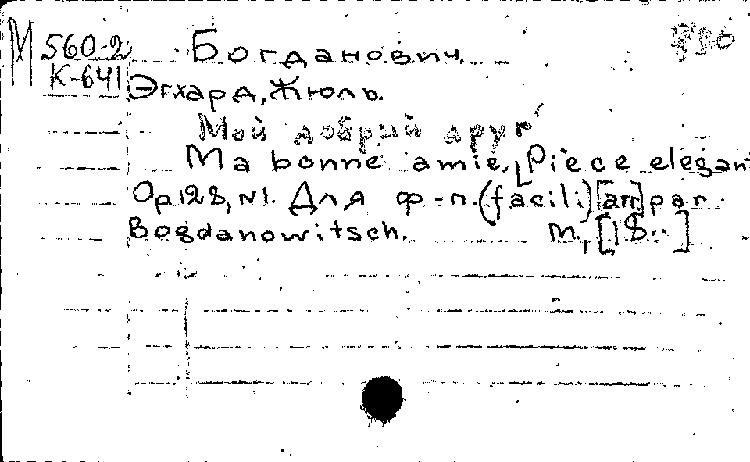 М 560-2 Богданович.
К-641 Эгхард, Жюль.
Мой добрый друг
Ma bonne amie, Piece elegan
Op 128, №1. Для ф-п. (facili) [arr] par
Bogdanowitsch. m., [18..]